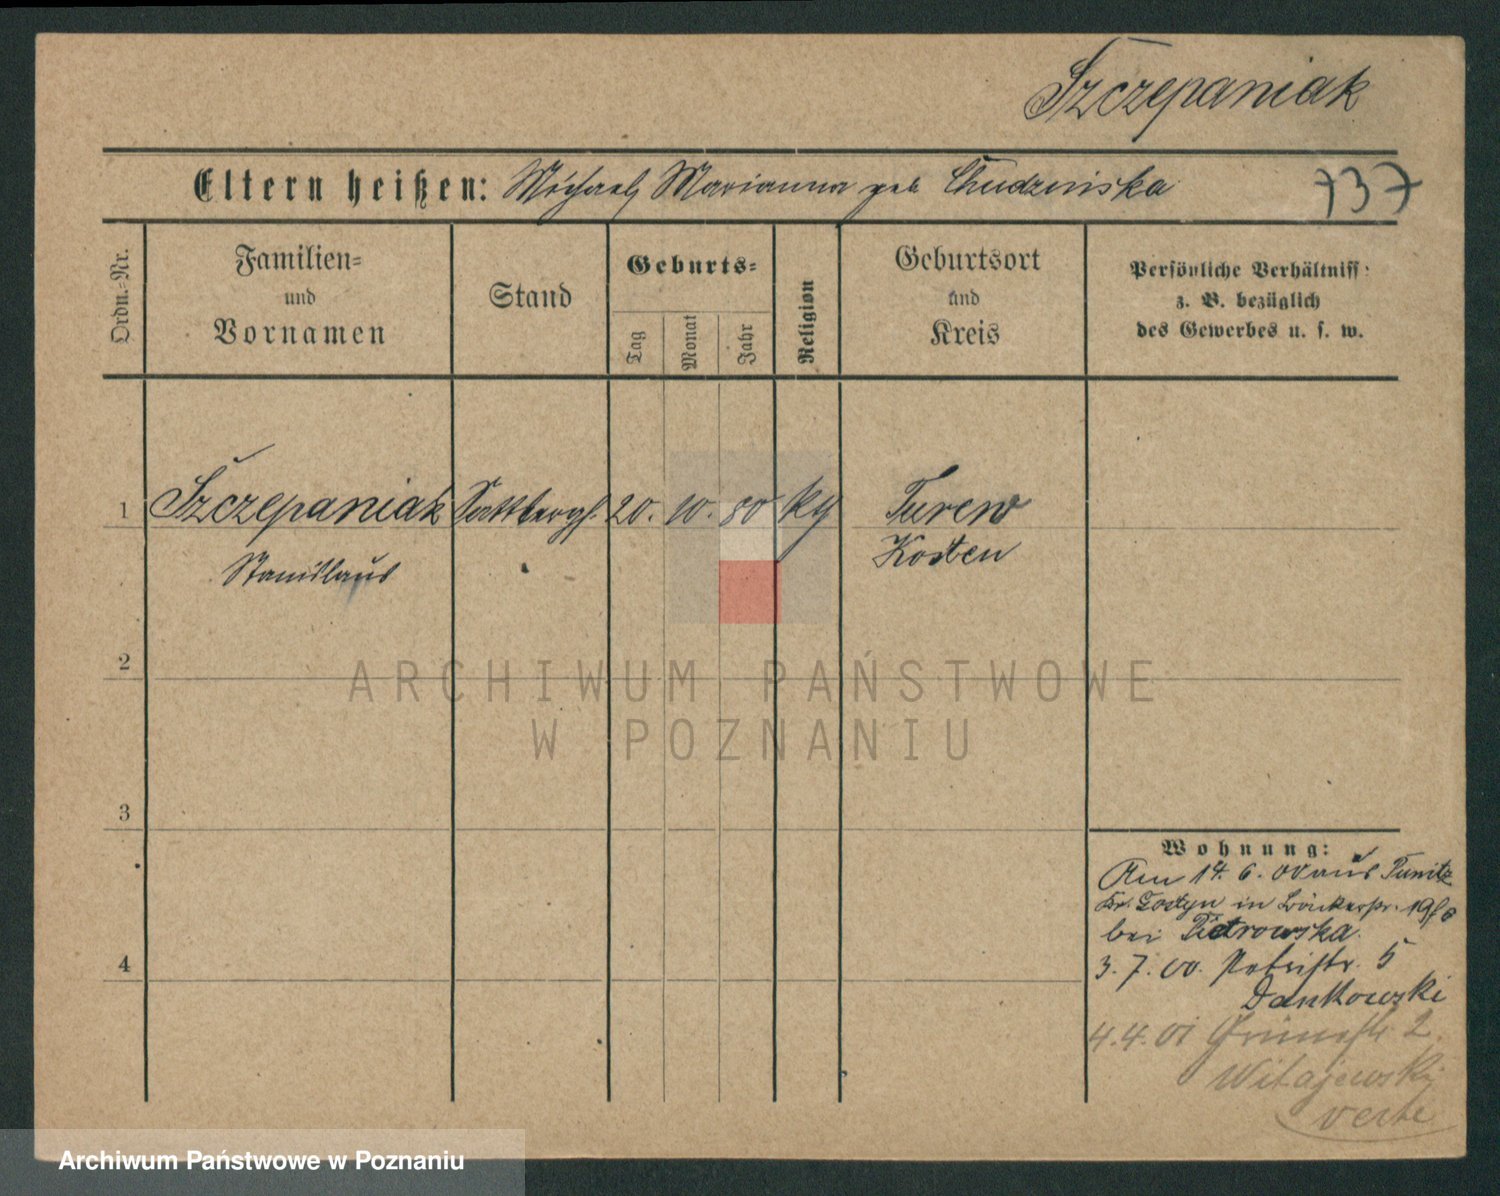 Szczepaniak
Eltern heißen: Michael Marianna geb Chudzinska
737
Ordn.-Nr.
Familien-
und
Vornamen
Stand
Geburts-
Tag
Monat
Jahr
Religion
Geburtsort
und
Kreis
Persönliche Verhältniss:
z. B. bezüglich
des Gewerbes u. s. w.
1 Szczepaniak Sattlergs. 20. 10. 80 kg Turew
Stanislaus Kosten
2
ARCHIWUM PAŃSTWOWE
W POZNANIU
3
Wohnung:
Am 14. 6. 00 aus Punitz
Kr. Gostyn in Bäckerstr. 19
bei Pietrowska
4
3. 7. 00. Petristr. 5
Dankowski
4.4.01 Grünestr 2
Witajewski
verte
Archiwum Państwowe w Poznaniu